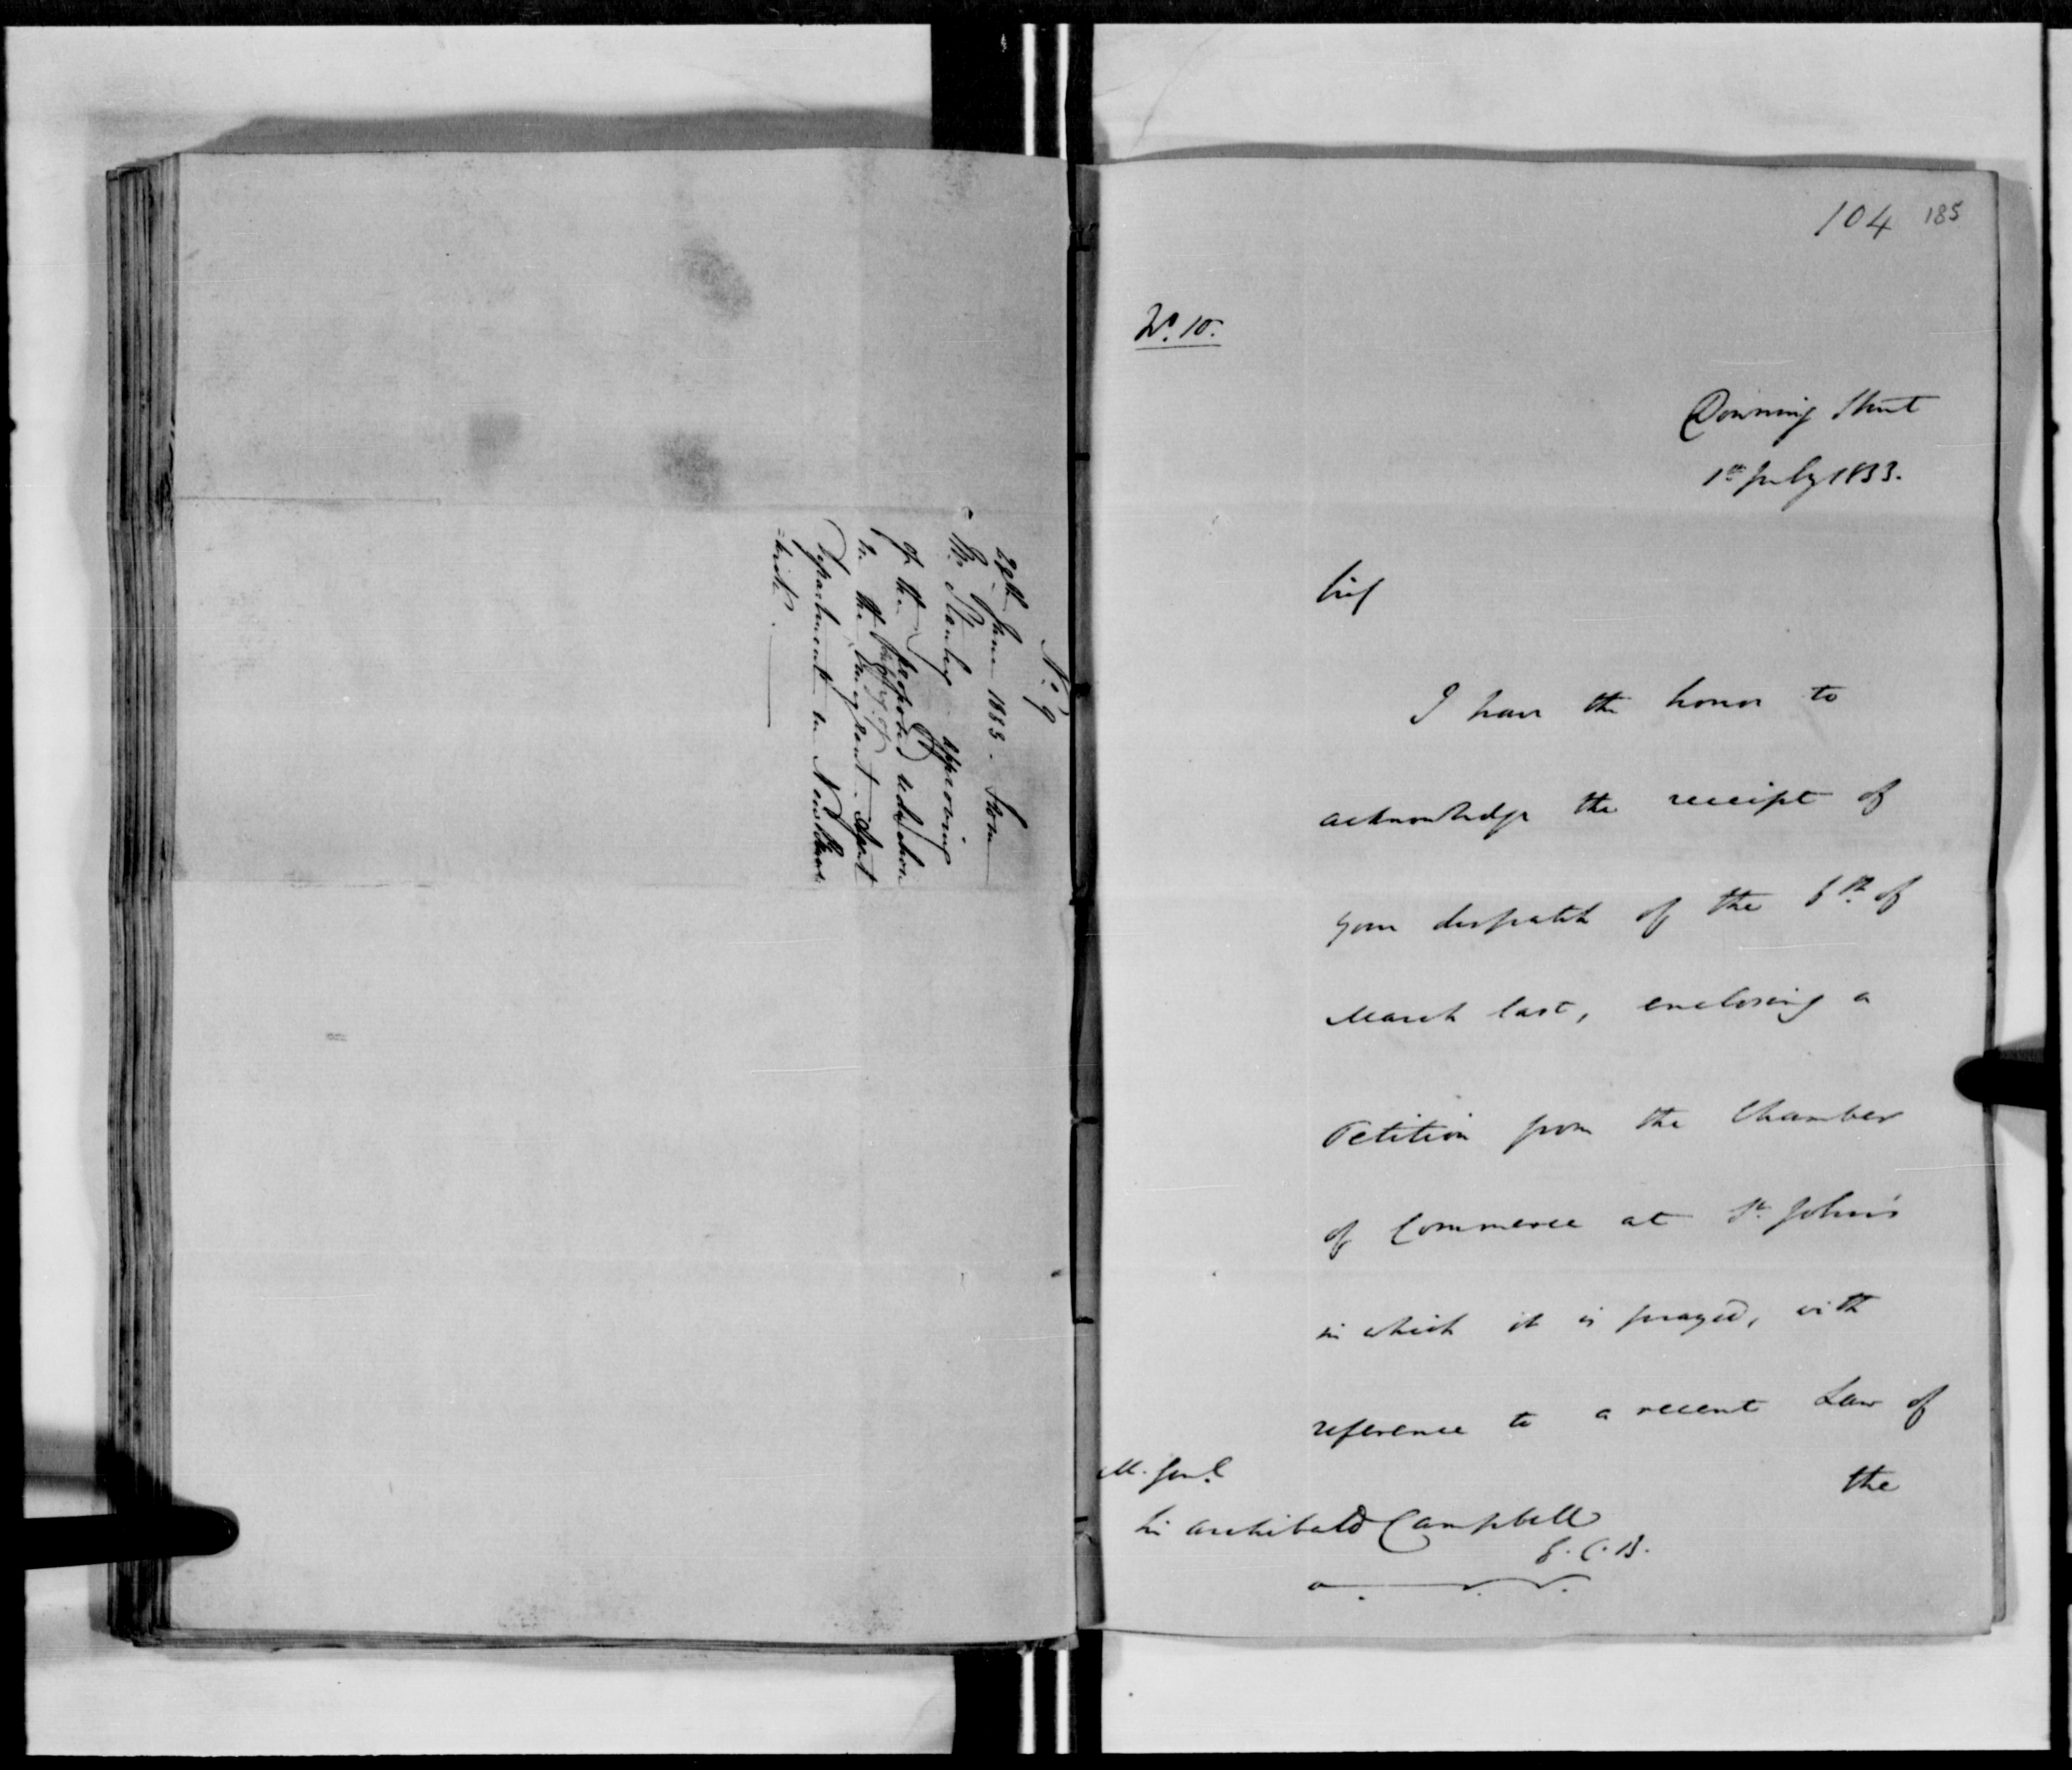 No. 9
29th June 1833. From
Mr. Stanley approving
of the proposed reduction
in the Emigrant Agent
Department in New Bruns
:wick.
104 185
No. 10.
Downing Street
1st July 1833.
Sir,
I have the honor to
acknowledge the receipt of
your despatch of the 6th. of
March last, enclosing a
Petition from the Chamber
of Commerce at St. John's
in which it is prayed, with
reference to a recent Law of
the
M. Genl.
Sir Archibald Campbell
G.C.B.